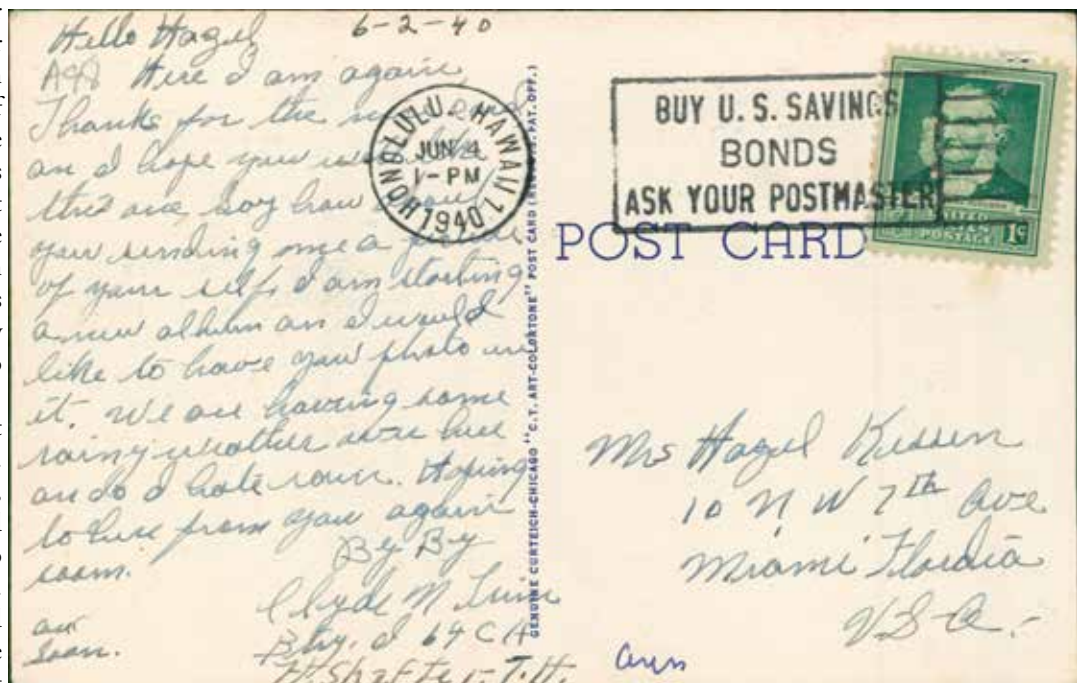 6-2-40
Hello Hazel
Here I am again
Thanks for the card
an I hope you like
this one, say how about
you sending me a picture
of your self, I am starting
a new album an I would
like to have your photo in
it. We are having some
rainy weather over here
an do I hate rain. Hoping
to here from you again
soon.
By By
Clyde M
Btry. I 64 CA
Ft. Shafter - T.H.
ans
soon.
GENUINE CURTEICH-CHICAGO "C.T. ART-COLORTONE" POST CARD (REG. U.S. PAT. OFF.)
HONOLULU, HAWAII 1
JUN 4
1-PM
1940
BUY U. S. SAVINGS
BONDS
ASK YOUR POSTMASTER
POST CARD
UNITED
STATES
POSTAGE
1¢
Mrs Hazel Kissen
10 N W 7th Ave
Miami Flordia
U.S.A.-